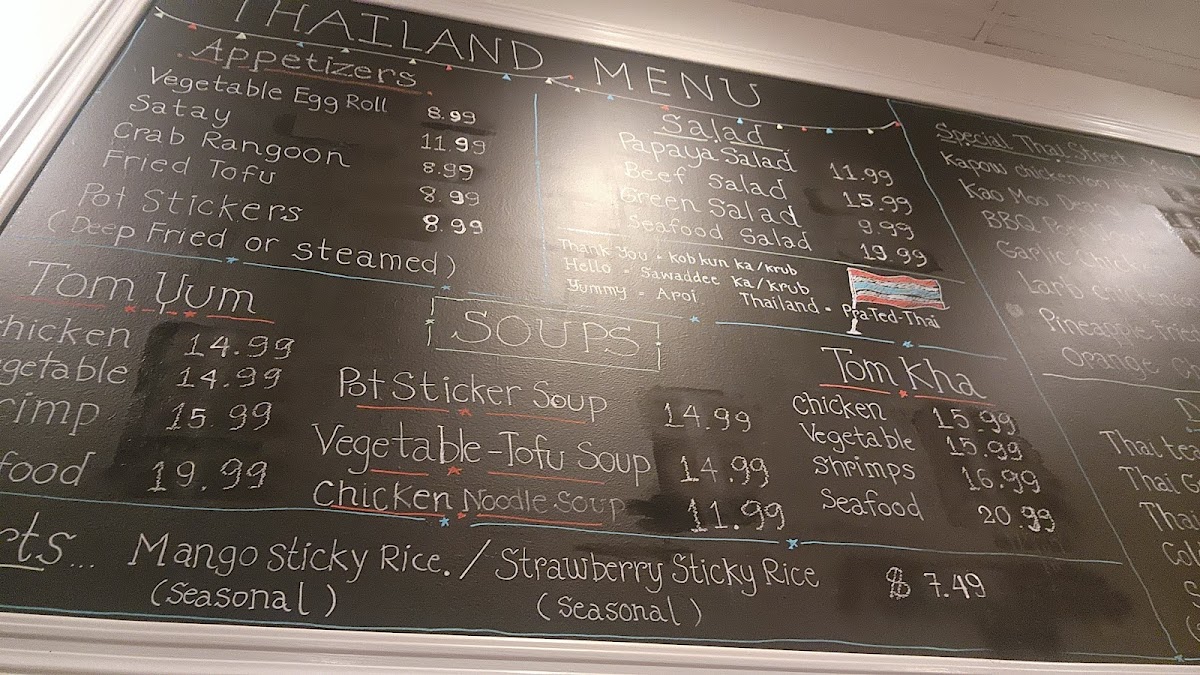 THAILAND MENU
Appetizers
Vegetable Egg Roll 8.99
Satay 11.99
Crab Rangoon 8.99
Fried Tofu 8.99
Pot Stickers 8.99
(Deep Fried or steamed)
Salad
Papaya Salad 11.99
Beef Salad 15.99
Green Salad 9.99
Seafood Salad 19.99
Thank You - kob kun ka/krub
Hello - Sawaddee ka/krub
Yummy - Aroi Thailand - Pra-Ted-Thai
Special Thai Street
Kapow chicken
Kao Moo Deang
BBQ
Garlic Chicken
Larb chicken
Pineapple Fried
Orange
Tom Yum
chicken 14.99
getable 14.99
rimp 15.99
food 19.99
SOUPS
Pot Sticker Soup 14.99
Vegetable-Tofu Soup 14.99
Chicken Noodle Soup 11.99
Tom Kha
chicken 15.99
Vegetable 15.99
Shrimps 16.99
Seafood 20.99
Thai tea
Thai
Thai
rts... Mango Sticky Rice. / Strawberry Sticky Rice $ 7.49
(Seasonal) (Seasonal)